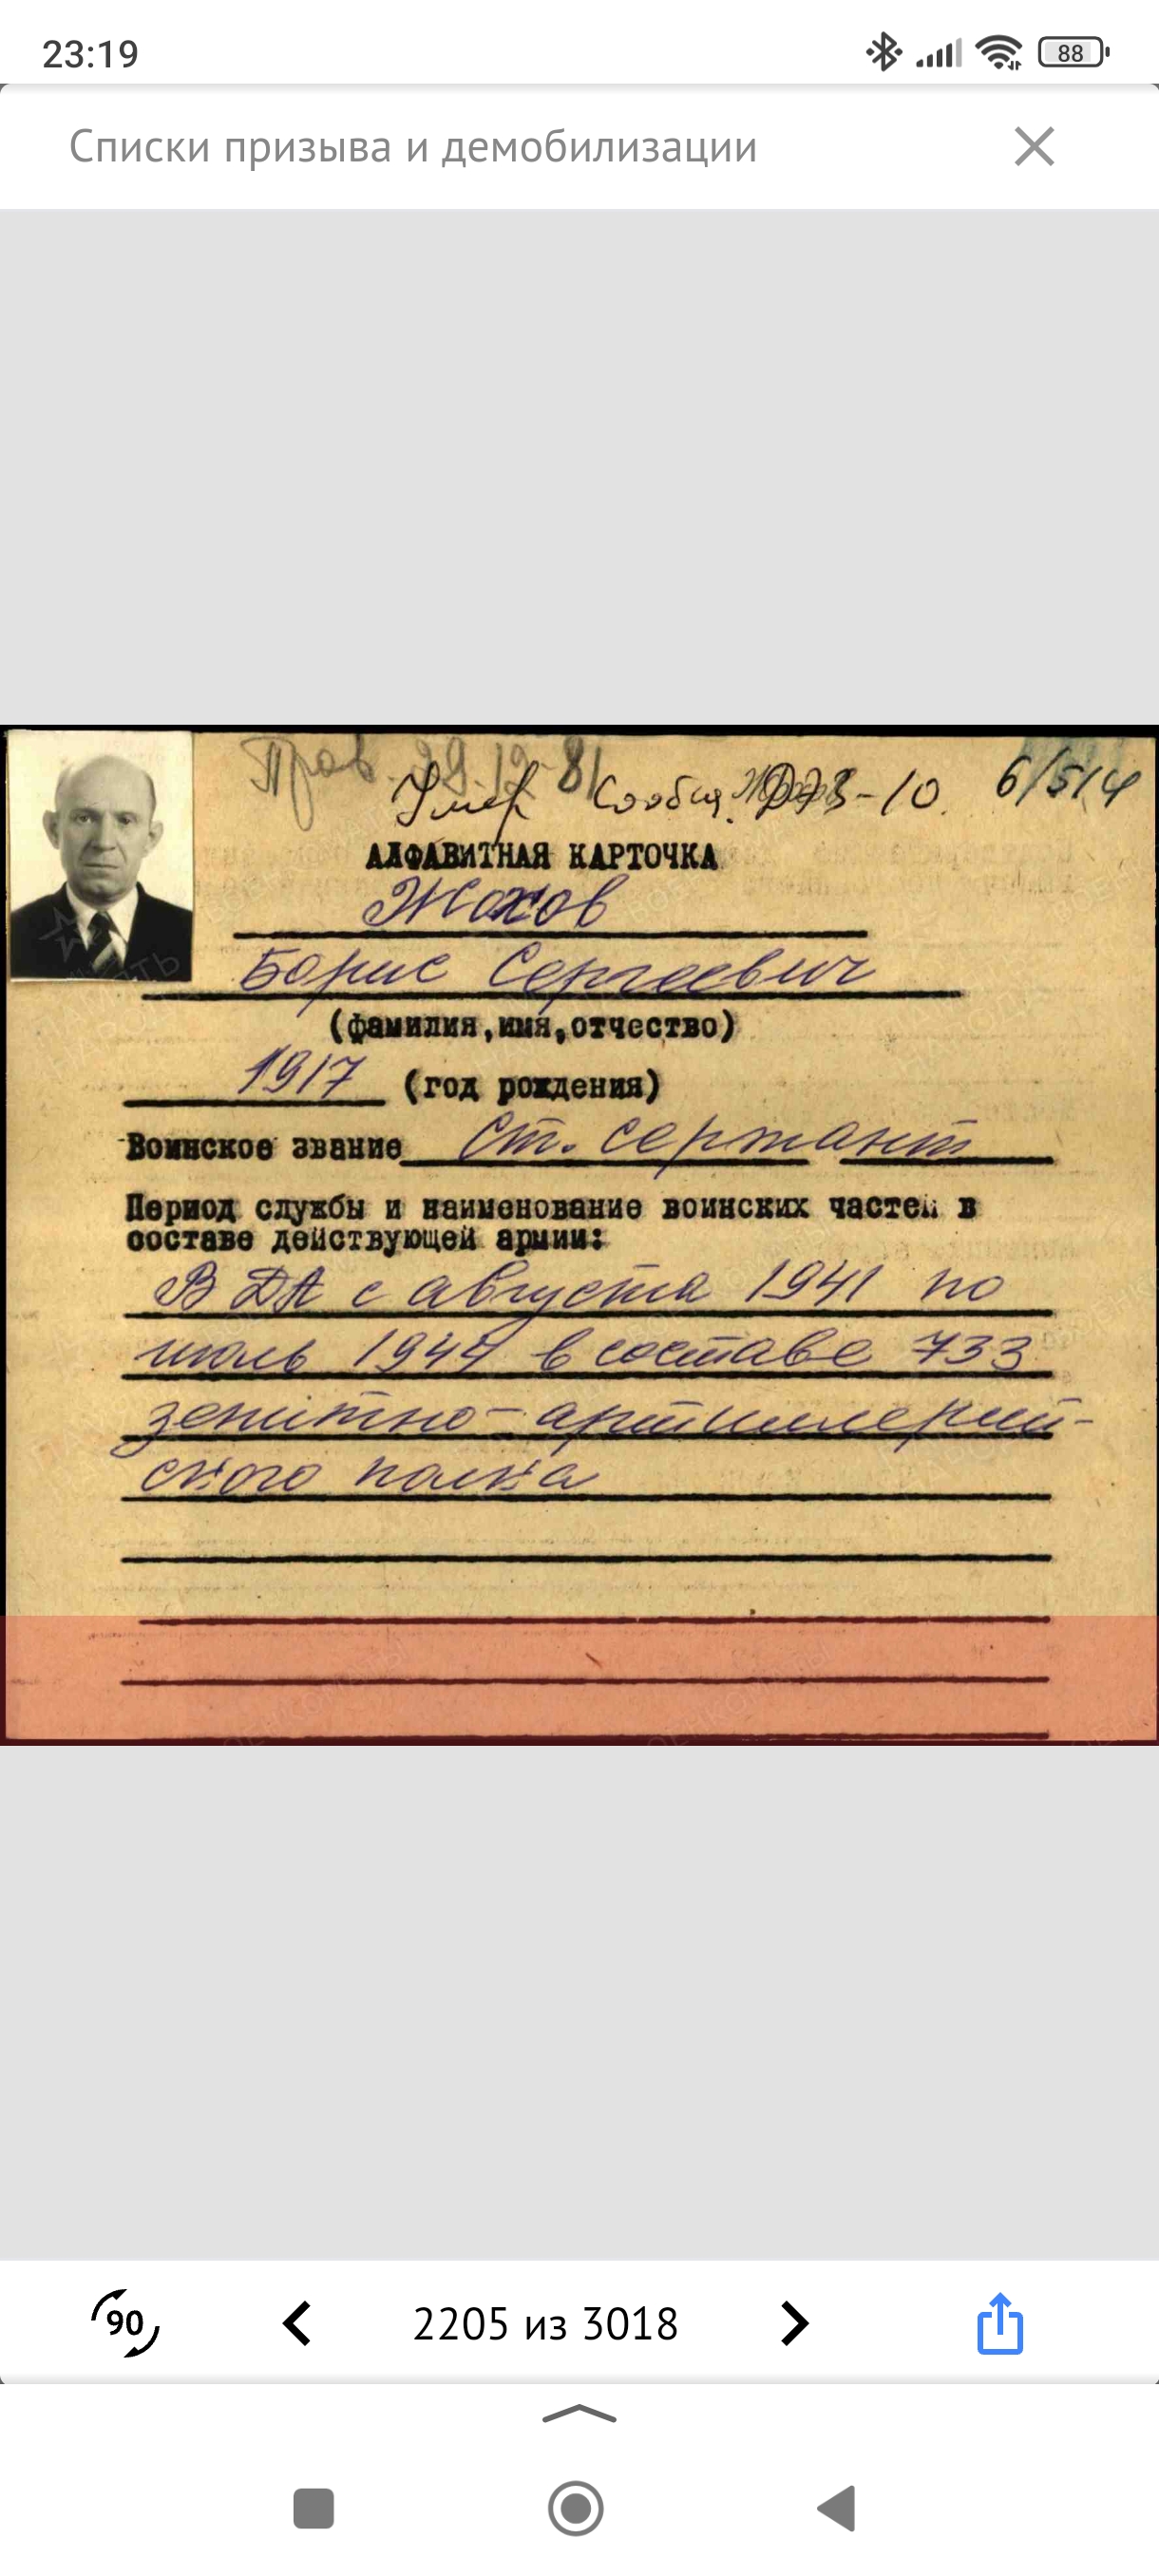 23:19
88
Списки призыва и демобилизации
Прав. 29.12-81
Умер Сообщ. Д73-10. 6/514
АЛФАВИТНАЯ КАРТОЧКА
Жохов
Борис Сергеевич
(фамилия,имя,отчество)
1917 (год рождения)
Воинское звание ст. сержант
Период службы и наименование воинских частей в
составе действующей армии:
В ДА с августа 1941 по
июль 1944 в составе 733
зенитно-артиллерий-
ского полка
90
2205 из 3018